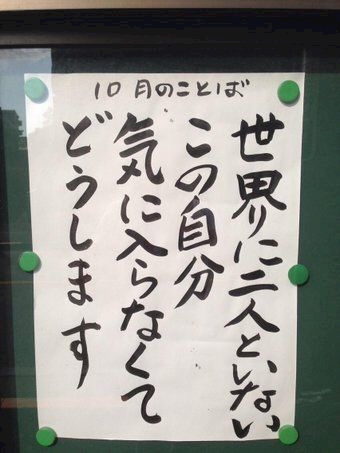 10月のことば
世界に二人といない
この自分
気に入らなくて
どうします